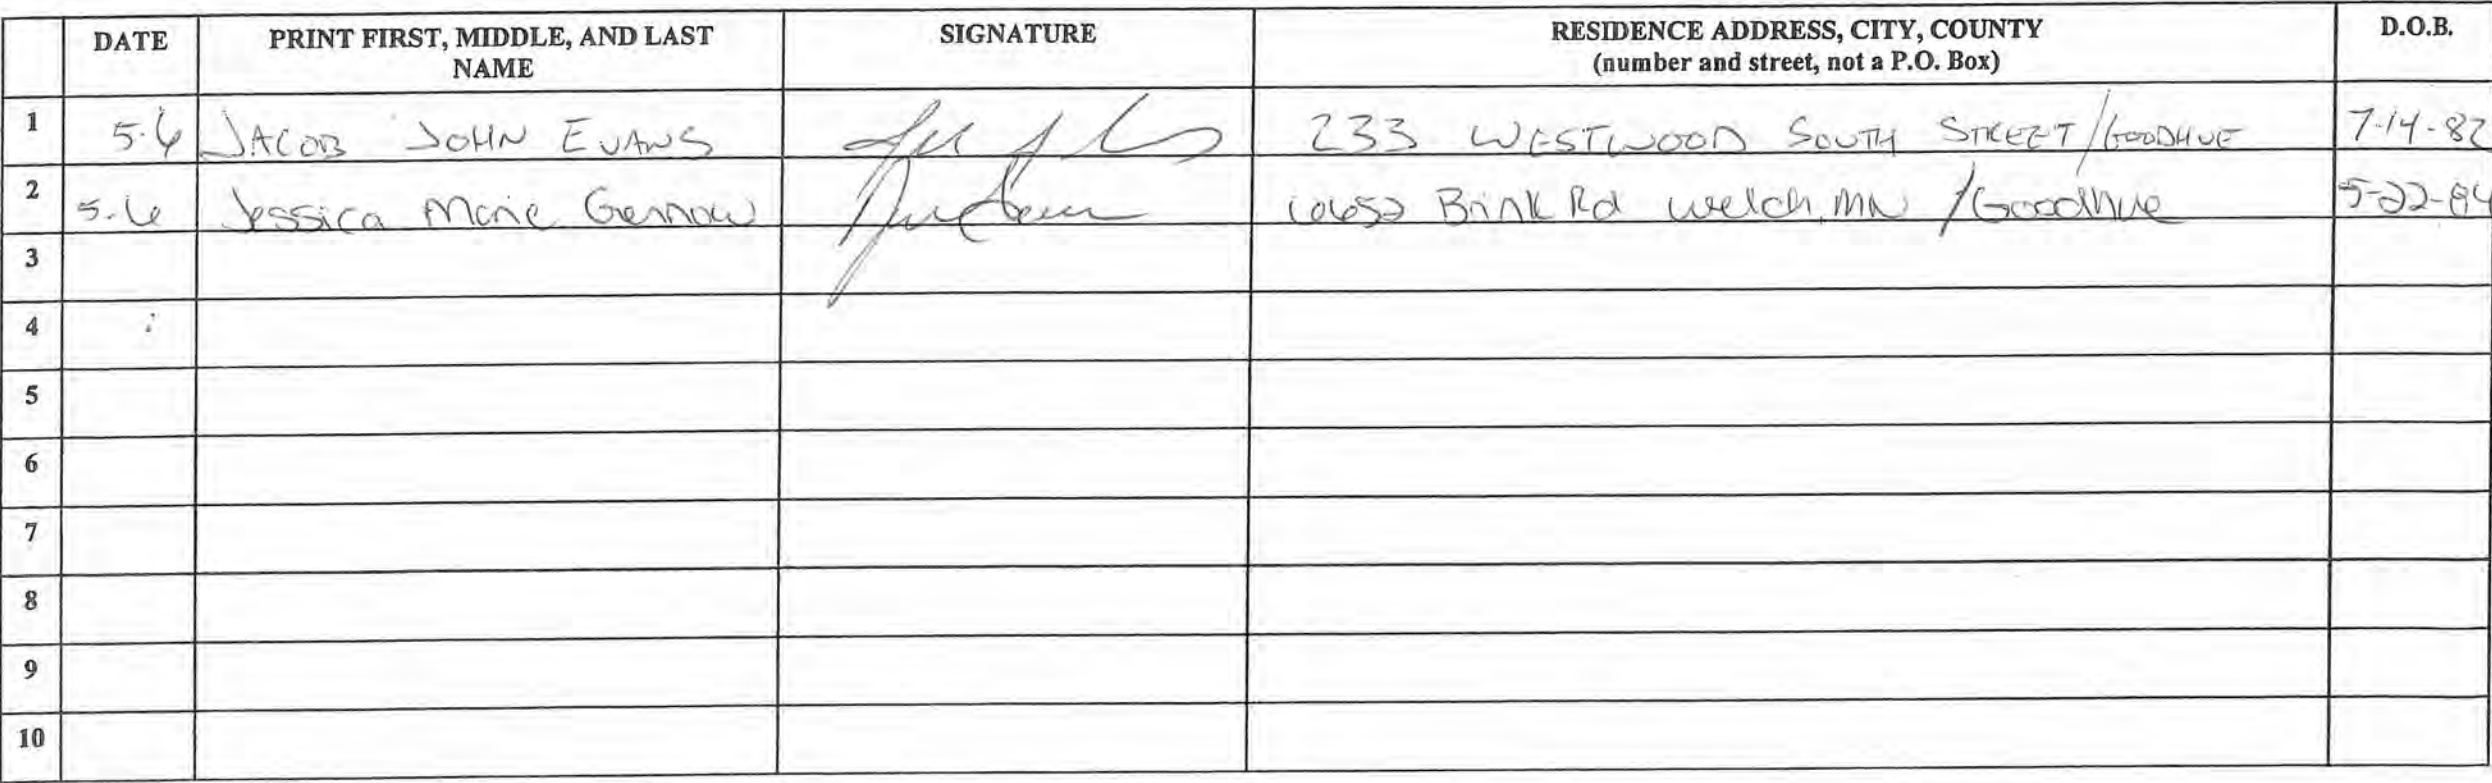 DATE PRINT FIRST, MIDDLE, AND LAST SIGNATURE RESIDENCE ADDRESS, CITY, COUNTY D.O.B.
NAME (number and street, not a P.O. Box)
1 5-6 JACOB JOHN EVANS 233 WESTWOOD SOUTH STREET/GOODHUE 7-14-82
2 5-6 Jessica Marie Brink Rd Welch, MN /Goodhue 5-22-84
3
4
5
6
7
8
9
10